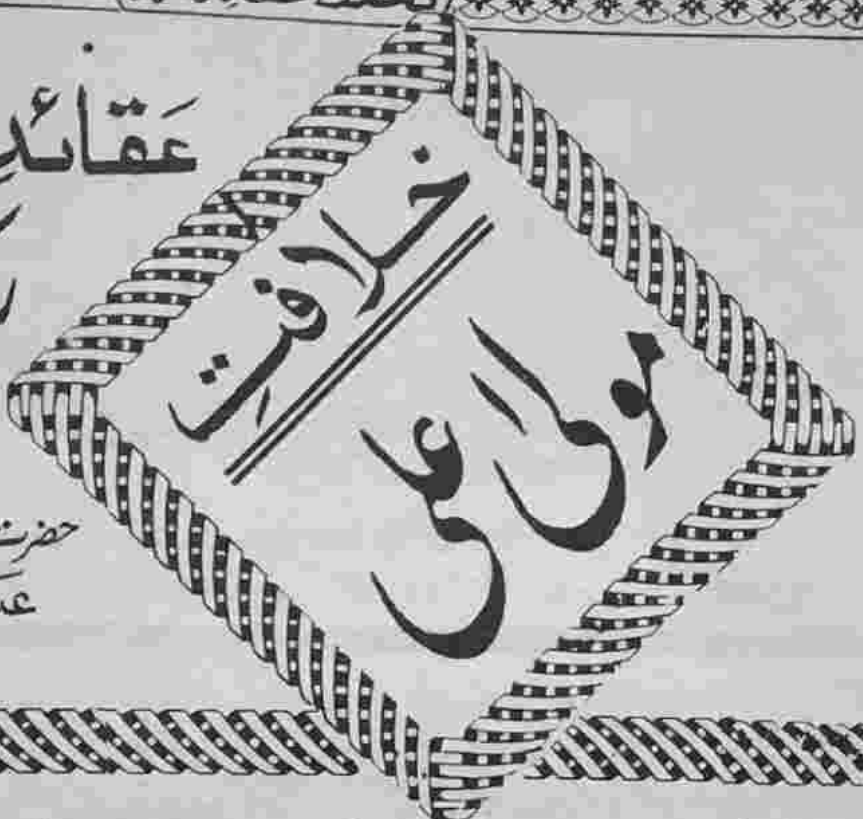 عقائد
خلافت
مولی علی
حضرت